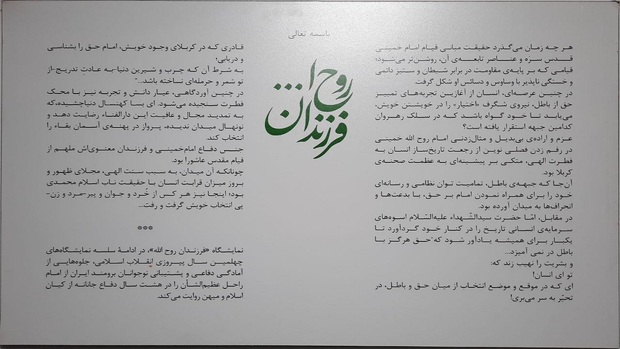 باسمه تعالی
فرزندان روح ا...
هر چه زمان می‌گذرد حقیقت مبانی قیام امام خمینی
قدس سره و عناصر تابعه‌ی آن، روشن‌تر می‌شود؛
قیامی که بر پایه‌ی مقاومت در برابر شیطان و ستیز دائمی
و خستگی ناپذیر با وساوس و دسائس او شکل گرفت
در چنین عرصه‌ای، انسان از آغازین تجربه‌های تمییز
حق از باطل، نیروی شگرف «اختیار» را در خویشتن خویش،
می‌یابد تا خود گواه باشد که در سلک رهروان
کدامین جبهه استقرار یافته است؟
عزم و اراده‌ی بی‌بدیل و مثال‌زدنی امام روح الله خمینی
در رقم زدن فصلی نوین از رجعت تاریخ‌ساز انسان به
فطرت الهی، متکی بر پیشینه‌ای به عظمت صحنه‌ی
کربلا بود.
آن‌جا که جبهه‌ی باطل، تمامیت توان نظامی و رسانه‌ای
خود را برای همراه نمودن امام بر حق، با بدعت‌ها و
انحراف‌ها به میدان آورده بود.
در مقابل، امّا حضرت سیدالشّهداء علیه‌السّلام اسوه‌های
سرمایه‌ی انسانی تاریخ را در کنار خود گردآورد تا
یکبار برای همیشه یادآور شود که-حق هرگز با
باطل در نمی آمیزد...
و بشریت را نهیب زند که:
تو ای انسان!
ای که در موقع و موضع انتخاب از میان حق و باطل، در
تحیّر به سر می‌بری!
قادری که در کربلای وجود خویش، امام حق را بشناسی
و دریابی؛
به شرط آن که چرب و شیرین دنیا-به عادت تدریج-از
تو شمر و حرمله‌ای نساخته باشد..."
در چنین آوردگاهی، عیار دانش و تجربه نیز با محک
فطرت سنجیده می‌شود. ای بسا کهنسال دنیاچشیده،که
به تمدید مجال و عافیت این دارالفناء رضایت دهد و
نونهال میدان ندیده، پرواز در پهنه‌ی آسمان بقاء را
انتخاب کند.
جنس دفاع امام‌خمینی و فرزندان معنوی‌اش ملهم از
قیام مقدس عاشورا بود.
چونانکه آن میدان، به سبب سنت الهی، مجلای ظهور و
بروز میزان قرابت انسان با حقیقت ناب اسلام محمدی
بود؛ اینجا نیز هر کس از خُرد و جوان و پیر-مرد و زن-
پی انتخاب خویش گرفت و رفت...
***
نمایشگاه «فرزندان روح الله»، در ادامهٔ سلسه نمایشگاه‌های
چهلمین سال پیروزی انقلاب اسلامی، جلوه‌هایی از
آمادگی دفاعی و پشتیبانی نوجوانان برومند ایران از امام
راحل عظیم‌الشأن را در هشت سال دفاع جانانه از کیان
اسلام و میهن روایت می‌کند.